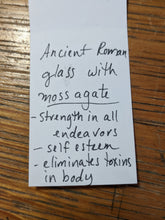 Ancient Roman
glass with
moss agate
- strength in all
endeavors
- self esteem
- eliminates toxins
in body